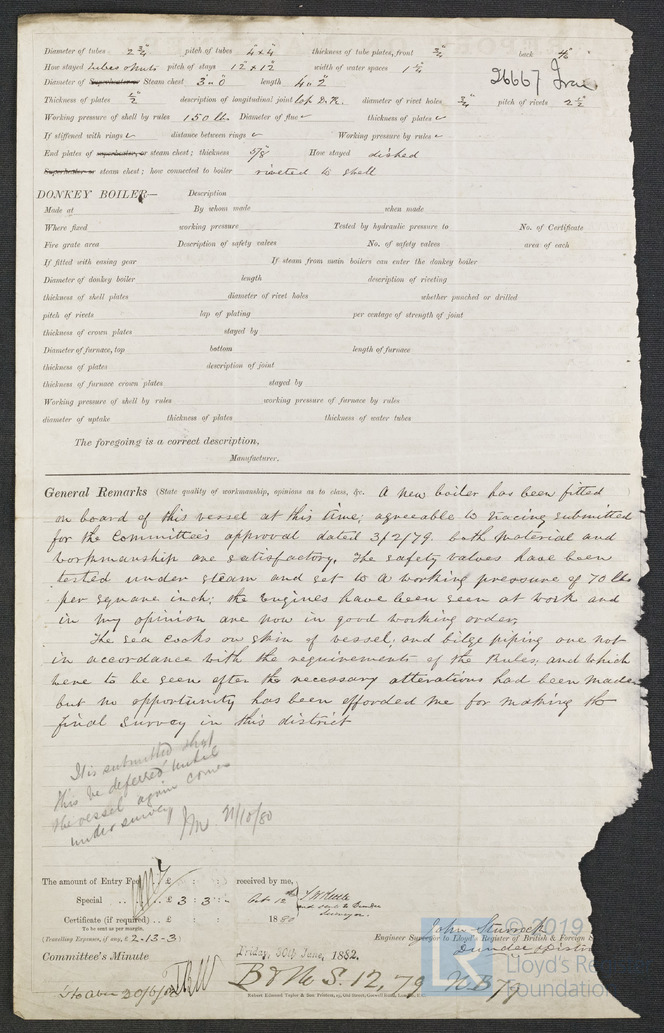 Diameter of tubes 2 3/4" pitch of tubes 4" x 4" thickness of tube plates, front 3/4" back
How stayed tubes & nuts pitch of stays 12" x 12" width of water spaces 1 1/4"
26667 Iron
Diameter of Superheater or Steam chest 3'-0" length 4'-2"
Thickness of plates 1/2" description of longitudinal joint lap D.R. diameter of rivet holes 3/4" pitch of rivets 2 1/2"
Working pressure of shell by rules 150 lb Diameter of flue thickness of plates
If stiffened with rings distance between rings Working pressure by rules
End plates of superheater, or steam chest; thickness 5/8" How stayed dished
Superheater or steam chest; how connected to boiler riveted to shell
DONKEY BOILER— Description
Made at By whom made when made
Where fixed working pressure Tested by hydraulic pressure to No. of Certificate
Fire grate area Description of safety valves No. of safety valves area of each
If fitted with easing gear If steam from main boilers can enter the donkey boiler
Diameter of donkey boiler length description of riveting
thickness of shell plates diameter of rivet holes whether punched or drilled
pitch of rivets lap of plating per centage of strength of joint
thickness of crown plates stayed by
Diameter of furnace, top bottom length of furnace
thickness of plates description of joint
thickness of furnace crown plates stayed by
Working pressure of shell by rules working pressure of furnace by rules
diameter of uptake thickness of plates thickness of water tubes
The foregoing is a correct description,
Manufacturer.
General Remarks (State quality of workmanship, opinions as to class, &c. A new boiler has been fitted
on board of this vessel at this time; agreeable to tracing submitted
for the Committee's approval dated 3/2/79. both material and
workmanship are satisfactory. The safety valves have been
tested under steam and set to a working pressure of 70 lbs
per square inch; the Engines have been seen at work and
in my opinion are now in good working order.
The sea cocks on skin of vessel, and bilge piping are not
in accordance with the requirements of the Rules, and which
were to be seen after the necessary alterations had been made
but no opportunity has been afforded me for making the
final survey in this district
It is submitted that
this be deferred until
the vessel again comes
under survey
21/10/80
The amount of Entry Fee .. £ : : received by me,
Special .. .. £ 3 : 3 : - Oct 12th
Certificate (if required) .. £ 1880
To be sent as per margin.
(Travelling Expenses, if any, £ 2-13-3)
John Sturrock
Engineer Surveyor to Lloyd's Register of British & Foreign S
Dundee District
Committee's Minute Friday, 30th June, 1882.
20/6/82
B & M S. 12, 79 N B 79
Robert Edmund Taylor & Son Printers, 19, Old Street, Goswell Road, London, E.C.
© 2019
Lloyd's Re
Foundation